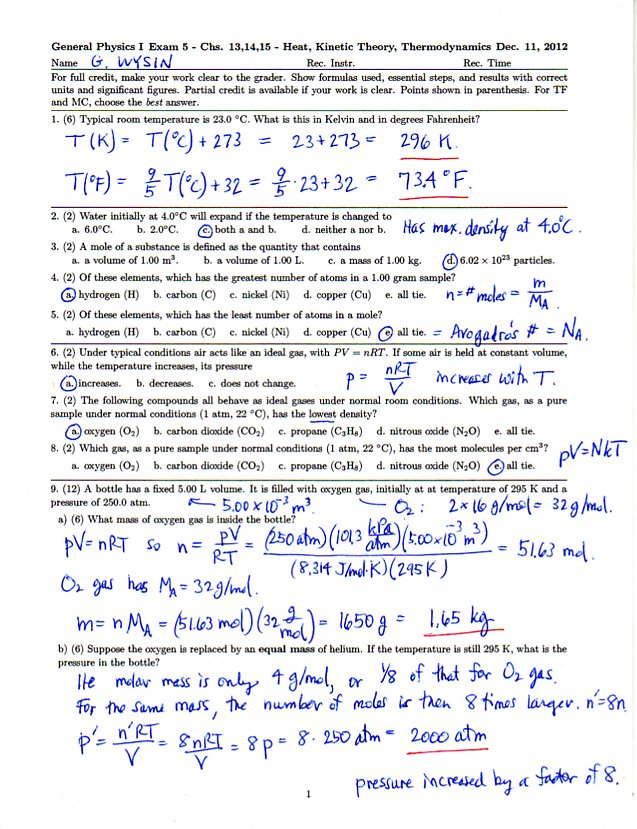 General Physics I Exam 5 - Chs. 13,14,15 - Heat, Kinetic Theory, Thermodynamics Dec. 11, 2012
Name G. WYSIN Rec. Instr. Rec. Time
For full credit, make your work clear to the grader. Show formulas used, essential steps, and results with correct
units and significant figures. Partial credit is available if your work is clear. Points shown in parenthesis. For TF
and MC, choose the best answer.
1. (6) Typical room temperature is 23.0 °C. What is this in Kelvin and in degrees Fahrenheit?
T(K) = T(°C) + 273 = 23+273 = 296 K.
T(°F) = 9/5 T(°C) + 32 = 9/5 · 23 + 32 = 73.4 °F.
2. (2) Water initially at 4.0°C will expand if the temperature is changed to
a. 6.0°C. b. 2.0°C. c. both a and b. d. neither a nor b. Has max. density at 4.0°C.
3. (2) A mole of a substance is defined as the quantity that contains
a. a volume of 1.00 m³. b. a volume of 1.00 L. c. a mass of 1.00 kg. d. 6.02 × 10²³ particles.
4. (2) Of these elements, which has the greatest number of atoms in a 1.00 gram sample?
a. hydrogen (H) b. carbon (C) c. nickel (Ni) d. copper (Cu) e. all tie. n = # moles = m/M_A
5. (2) Of these elements, which has the least number of atoms in a mole?
a. hydrogen (H) b. carbon (C) c. nickel (Ni) d. copper (Cu) e. all tie. = Avogadro's # = N_A.
6. (2) Under typical conditions air acts like an ideal gas, with PV = nRT. If some air is held at constant volume,
while the temperature increases, its pressure
a. increases. b. decreases. c. does not change. p = nRT/V increases with T.
7. (2) The following compounds all behave as ideal gases under normal room conditions. Which gas, as a pure
sample under normal conditions (1 atm, 22 °C), has the lowest density?
a. oxygen (O₂) b. carbon dioxide (CO₂) c. propane (C₃H₈) d. nitrous oxide (N₂O) e. all tie.
8. (2) Which gas, as a pure sample under normal conditions (1 atm, 22 °C), has the most molecules per cm³? pV=NkT
a. oxygen (O₂) b. carbon dioxide (CO₂) c. propane (C₃H₈) d. nitrous oxide (N₂O) e. all tie.
9. (12) A bottle has a fixed 5.00 L volume. It is filled with oxygen gas, initially at at temperature of 295 K and a
pressure of 250.0 atm. 5.00 × 10⁻³ m³. O₂ : 2×16 g/mol = 32 g/mol.
a) (6) What mass of oxygen gas is inside the bottle?
pV = nRT so n = pV/RT = (250 atm)(101.3 kPa/atm)(5.00×10⁻³ m³)/(8.314 J/mol·K)(295 K) = 51.63 mol.
O₂ gas has M_A = 32 g/mol.
m = n M_A = (51.63 mol)(32 g/mol) = 1650 g = 1.65 kg
b) (6) Suppose the oxygen is replaced by an equal mass of helium. If the temperature is still 295 K, what is the
pressure in the bottle?
He molar mass is only 4 g/mol, or 1/8 of that for O₂ gas.
For the same mass, the number of moles is then 8 times larger. n' = 8n
p' = n'RT/V = 8nRT/V = 8p = 8 · 250 atm = 2000 atm
pressure increased by a factor of 8.
1